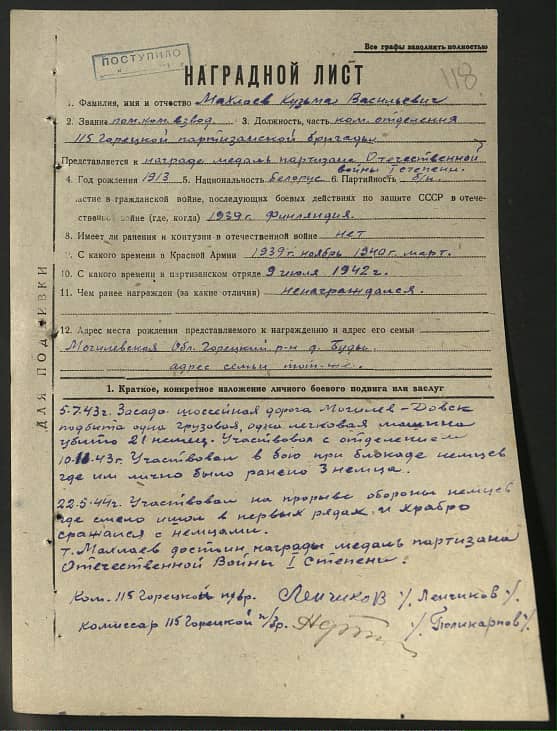 Все графы заполнять полностью
ПОСТУПИЛО
118
НАГРАДНОЙ ЛИСТ
1. Фамилия, имя и отчество Махлаев Кузьма Васильевич
2. Звание пом.ком.взвод. 3. Должность, часть ком.отделения
115 Горецкой партизанской бригады
Представляется к награде медаль партизана Отечественной
войны I степени.
4. Год рождения 1913 5. Национальность белорус 6. Партийность б/п
астие в гражданской войне, последующих боевых действиях по защите СССР в отече-
ственной войне (где, когда) 1939г. Финляндия.
8. Имеет ли ранения и контузии в отечественной войне нет
9. С какого времени в Красной Армии 1939г. ноябрь 1940г. март.
10. С какого времени в партизанском отряде 9 июля 1942г.
11. Чем ранее награжден (за какие отличия) ненаграждался.
12. Адрес места рождения представляемого к награждению и адрес его семьи
Могилевская Обл. Горецкий р-н д. Буды.
адрес семьи тот-же.
ДЛЯ ПОДШИВКИ
1. Краткое, конкретное изложение личного боевого подвига или заслуг
5.7.43г. Засада шоссейная дорога Могилев-Довск
подбита одна грузовая, одна легковая машина
убито 21 немец. Участвовал с отделением
43г. Участвовал в бою при блокаде немцев
где им лично было ранено 3 немца.
22.5.44г. Участвовал на прорыве обороны немцев
где смело ишол в первых рядах и храбро
сражался с немцами.
т. Махлаев достоин награды медаль партизана
Отечественной Войны I Степени.
Ком. 115 Горецкой п/бр. Ленчиков /. Ленчиков /.
Комиссар 115 Горецкой п/бр. /. Поликарпов /.